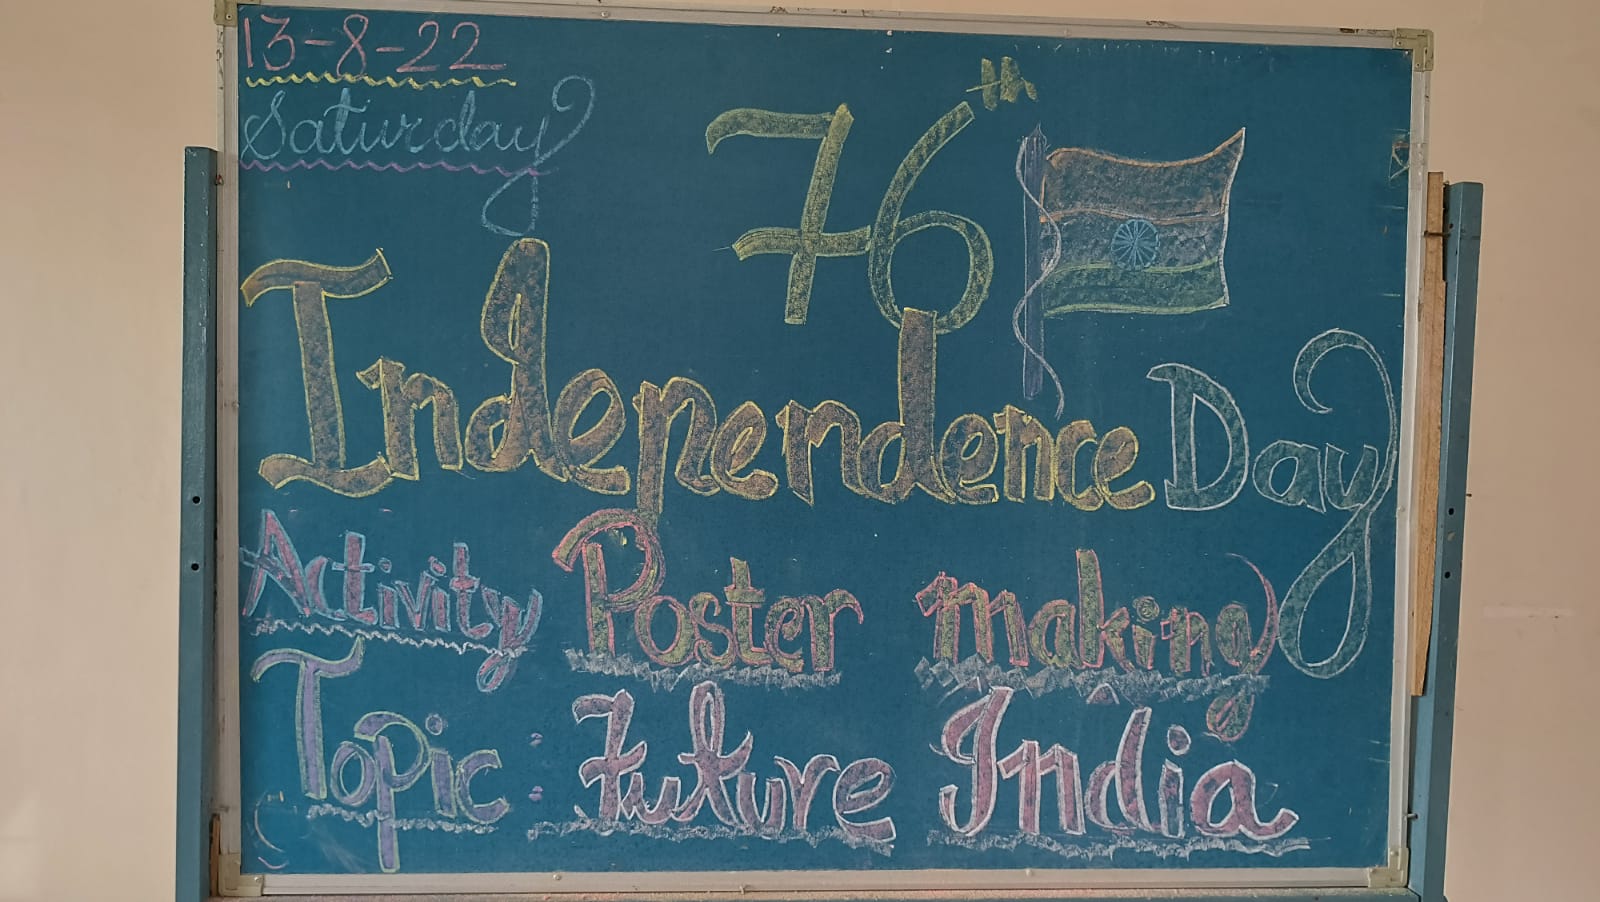 13-8-22
Saturday
76th
Independence Day
Activity Poster making
Topic : Future India